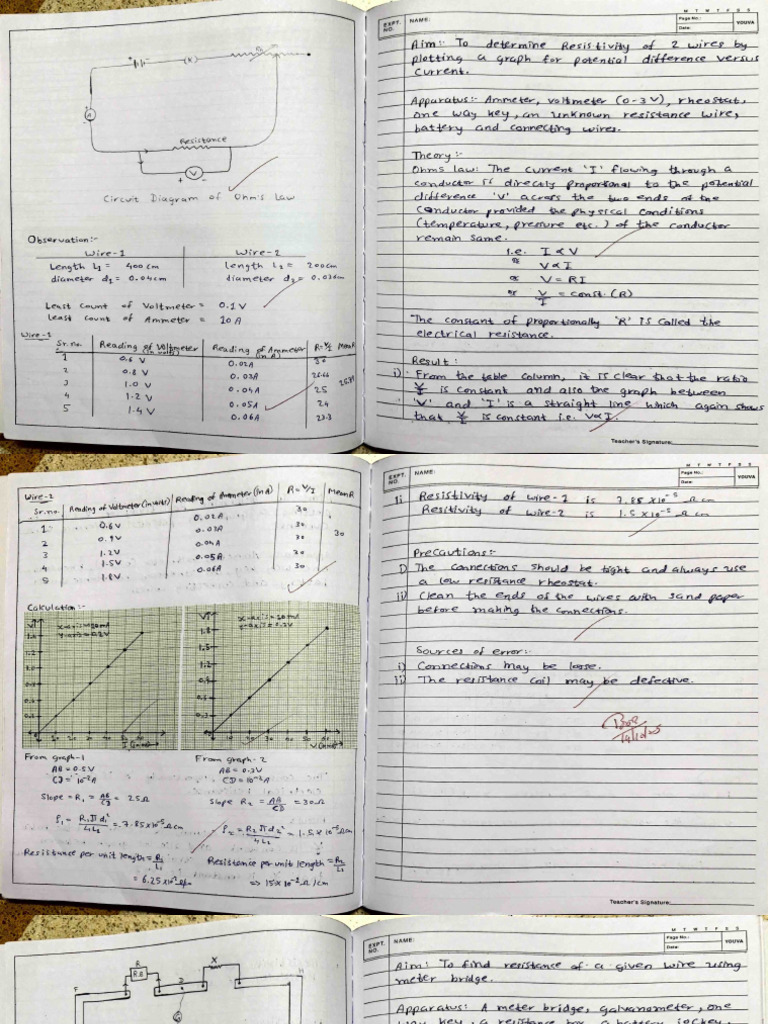 Rh
(K)
A
Resistance
+ V -
Circuit Diagram of Ohm's Law
Observation:-
Wire-1 Wire-2
Length L₁ = 400cm Length L₂ = 200cm
diameter d₁ = 0.04cm diameter d₂ = 0.036cm
Least Count of Voltmeter = 0.1V
Least Count of Ammeter = 10A
Wire-1
Sr.no. Reading of Voltmeter (in volts) Reading of Ammeter (in A) R=V/I Mean R
1 0.6 V 0.02A 30
2 0.8 V 0.03A 26.66
3 1.0 V 0.04A 25
4 1.2 V 0.05A 24
5 1.4 V 0.06A 23.3
M T W T F S S
EXPT. NO. NAME: Page No.: YOUVA
Date:
Aim:- To determine Resistivity of 2 wires by
plotting a graph for potential difference versus
current.
Apparatus:- Ammeter, voltmeter (0-3V), rheostat,
one way key, an unknown resistance wire,
battery and connecting wires.
Theory:-
Ohms law: The current 'I' flowing through a
conductor is directly proportional to the potential
difference 'V' across the two ends of the
conductor provided the physical conditions
(temperature, pressure etc.) of the conductor
remain same.
i.e. I ∝ V
or V ∝ I
or V = RI
or V/I = const. (R)
The constant of proportionally 'R' is called the
electrical resistance.
Result:
i) From the table column, it is clear that the ratio
V/I is constant and also the graph between
'V' and 'I' is a straight line which again shows
that V/I is constant i.e. V∝I.
Teacher's Signature:
Wire-2
Sr.no. Reading of Voltmeter (in volts) Reading of Ammeter (in A) R=V/I Mean R
1 0.6V 0.02A 30
2 0.9V 0.03A 30 30
3 1.2V 0.04A 30
4 1.5V 0.05A 30
5 1.8V 0.06A 30
Calculation:-
V↑ x-axis=20mA
y-axis=0.2V
V↑ x-axis=20mA
From graph-1 From graph-2
AB=0.5V AB=0.3V
CD=10⁻²A CD=10⁻²A
Slope = R₁ = AB/CD = 25Ω Slope R₂ = AB/CD = 30Ω
ρ₁ = R₁πd₁²/4L₁ = 7.85x10⁻⁵Ωcm ρ₂ = R₂πd₂²/4L₂ = 1.5x10⁻⁵Ωcm
Resistance per unit length = R₁/L₁ Resistance per unit length = R₂/L₂
⇒ 15x10⁻²Ω/cm
M T W T F S S
EXPT. NO. NAME: Page No.: YOUVA
Date:
ii Resistivity of wire-1 is 7.85 x10⁻⁵ Ωcm
Resitivity of wire-2 is 1.5x10⁻⁵ Ωcm
Precautions:-
i) The connections should be tight and always use
a low resistance rheostat.
ii) Clean the ends of the wires with sand paper
before making the connections.
Sources of error:-
i) Connections may be loose.
ii) The resistance coil may be defective.
Teacher's Signature:
R
RB
X
G
M T W T F S S
EXPT. NO. NAME: Page No.: YOUVA
Date:
Aim: To find resistance of a given wire using
meter bridge.
Apparatus: A meter bridge, galvanometer, one
way key, a resistance box, a battery, jockey,